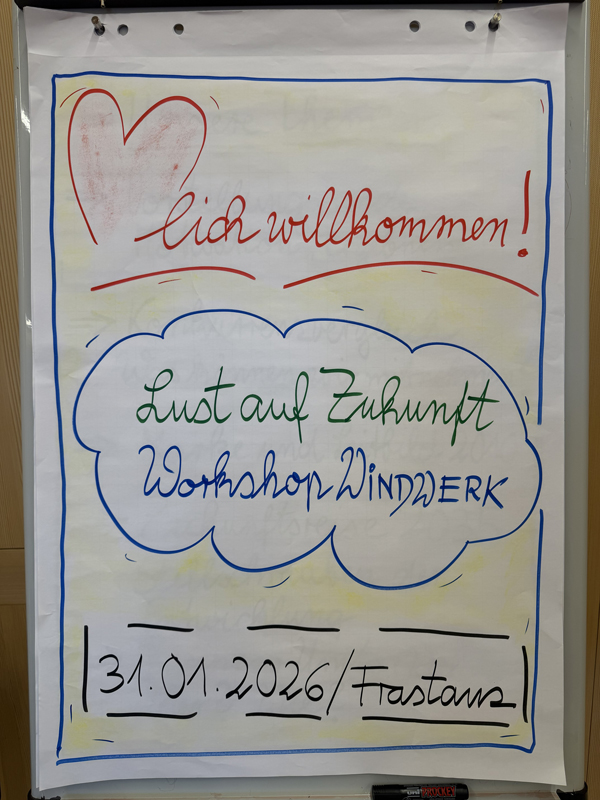 lich willkommen!
Lust auf Zukunft
Workshop WINDWERK
31.01.2026/Frastanz